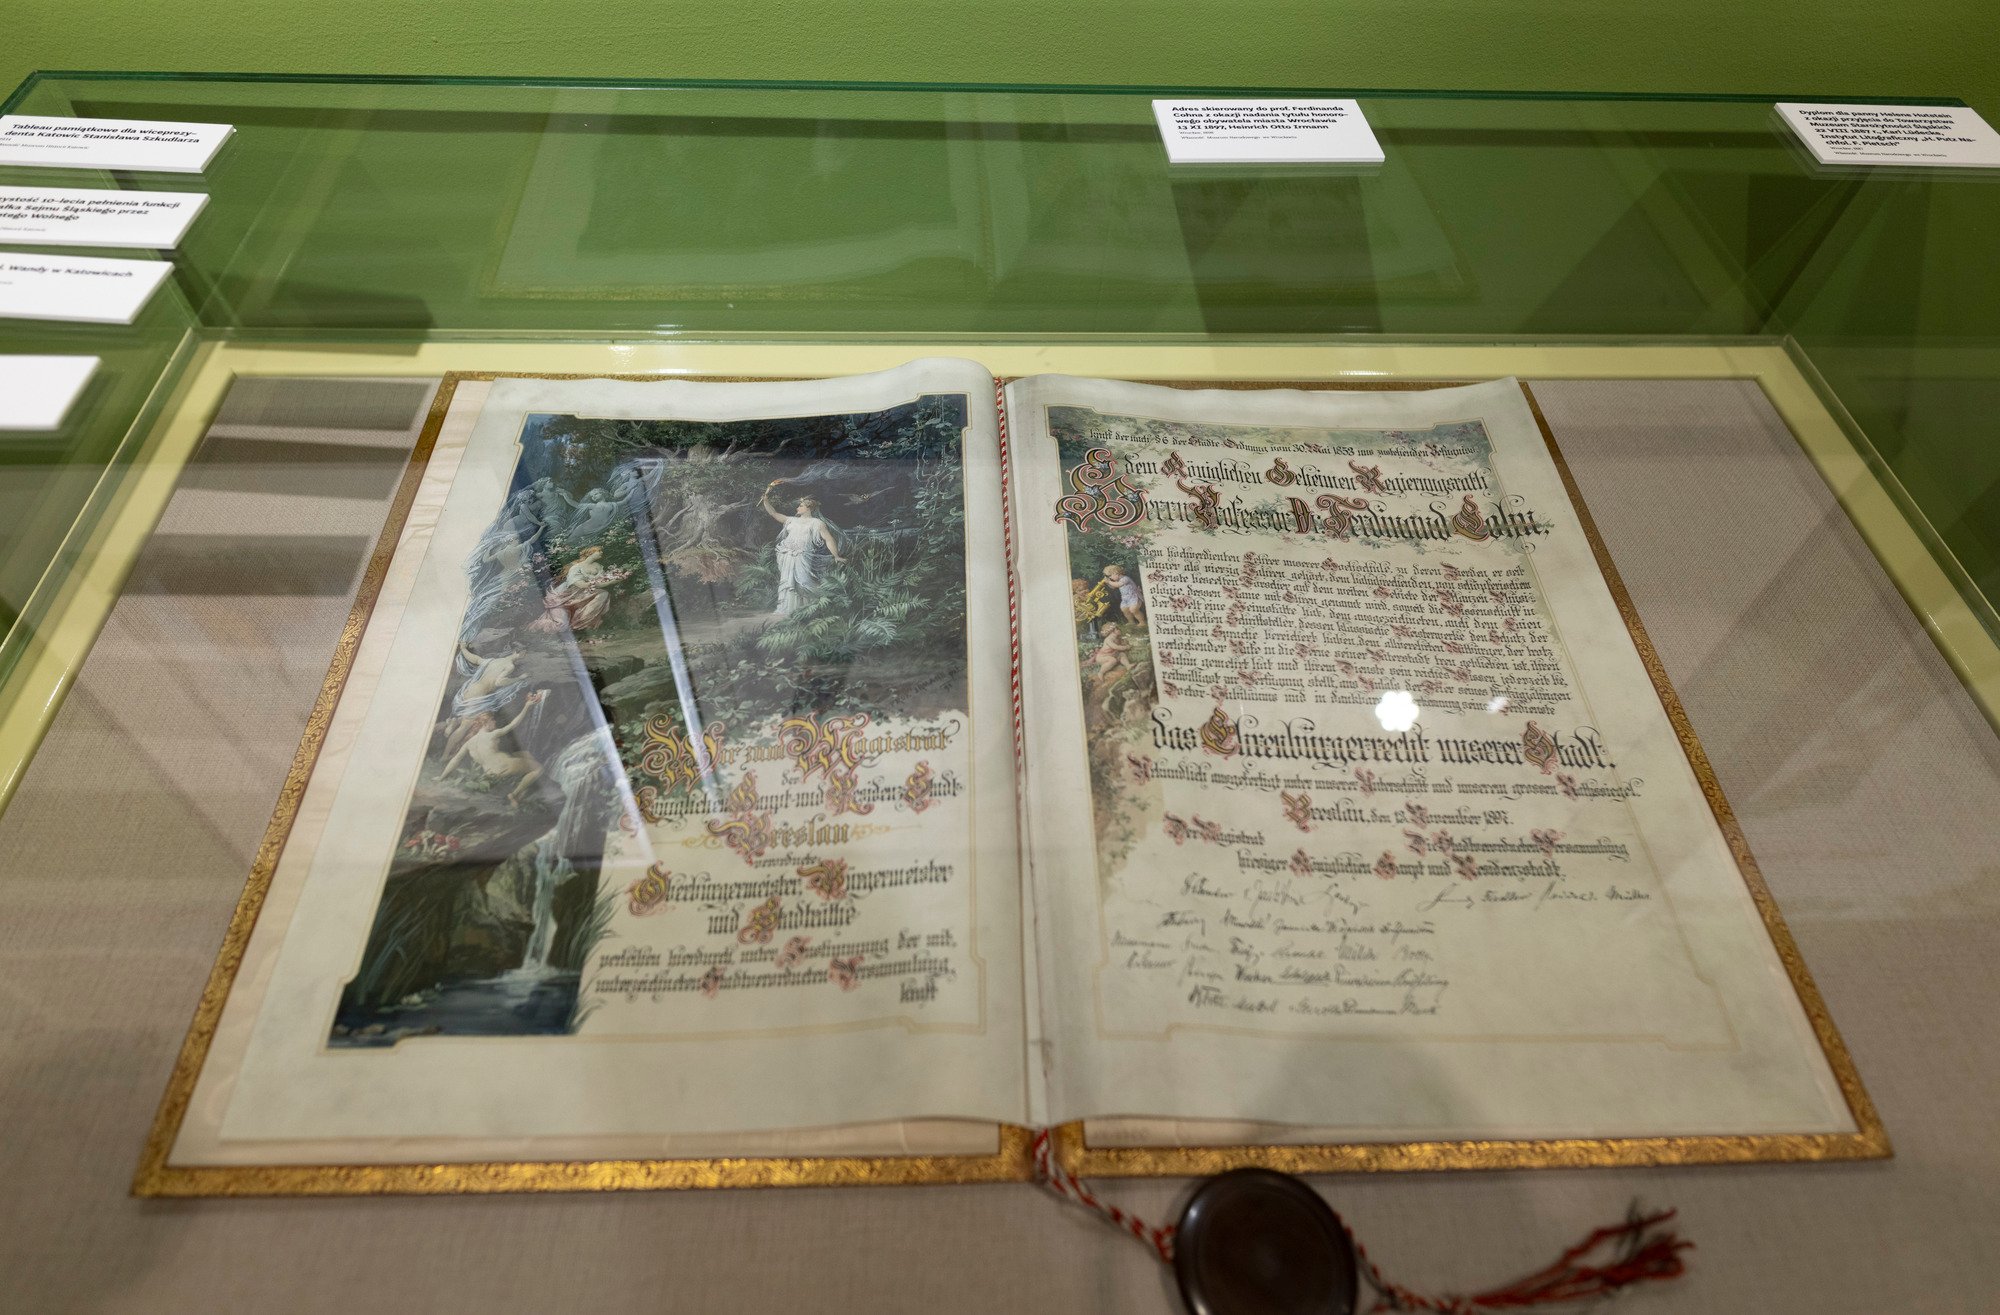 Tableau pamiątkowe dla wiceprezy-
denta Katowic Stanisława Szkudlarza
zystość 10-lecia pełnienia funkcji
ałka Sejmu Śląskiego przez
tego Wolnego
. Wandy w Katowicach
Adres skierowany do prof. Ferdinanda
Cohna z okazji nadania tytułu honoro-
wego obywatela miasta Wrocławia
13 XI 1897, Heinrich Otto Irmann
Wrocław, 1897
Własność: Muzeum Narodowego we Wrocławiu
Dyplom dla panny Helene Hutstein
z okazji przyjęcia do Towarzystwa
Muzeum Starożytności Śląskich
22 VIII 1887 r., Karl Lüdecke,
Instytut Litograficzny „H. Putz Na-
chfol. F. Pietsch"
Wrocław, 1887
Własność: Muzeum Narodowego we Wrocławiu
Wir zum Magistrat
der
Königlichen Haupt- und Residenz-Stadt
Breslau
verordnete
Oberbürgermeister, Bürgermeister
und Stadträthe
verleihen hierdurch, unter Zustimmung der mit-
unterzeichneten Stadtverordneten-Versammlung,
kraft
kraft der nach §6 der Städte-Ordnung vom 30. Mai 1853 uns zustehenden Befugniss
dem Königlichen Geheimen Regierungsrath
Herrn Professor Dr. Ferdinand Cohn,
dem hochverdienten Lehrer unserer Hochschule, zu deren Zierden er seit
länger als vierzig Jahren gehört, dem bahnbrechenden, von schöpferischem
Geiste beseelten Forscher auf dem weiten Gebiete der Pflanzen-Physi-
ologie, dessen Name mit Ehren genannt wird, soweit die Wissenschaft in
der Welt eine Heimstätte hat, dem ausgezeichneten, auch dem Laien
zugänglichen Schriftsteller, dessen klassische Meisterwerke den Schatz der
deutschen Sprache bereichert haben, dem allverehrten Mitbürger, der trotz
verlockender Rufe in die Ferne seiner Vaterstadt treu geblieben ist, ihren
Ruhm gemehrt hat und ihrem Dienste sein reiches Wissen jederzeit be-
reitwilligst zur Verfügung stellt, aus Anlass der Feier seines fünfzigjährigen
Doctor-Jubiläums und in dankbarer Anerkennung seiner Verdienste
das Ehrenbürgerrecht unserer Stadt.
Urkundlich ausgefertigt unter unserer Unterschrift und unserem grossen Rathssiegel.
Breslau, den 13. November 1897.
Der Magistrat Die Stadtverordneten-Versammlung
hiesiger Königlichen Haupt und Residenzstadt.